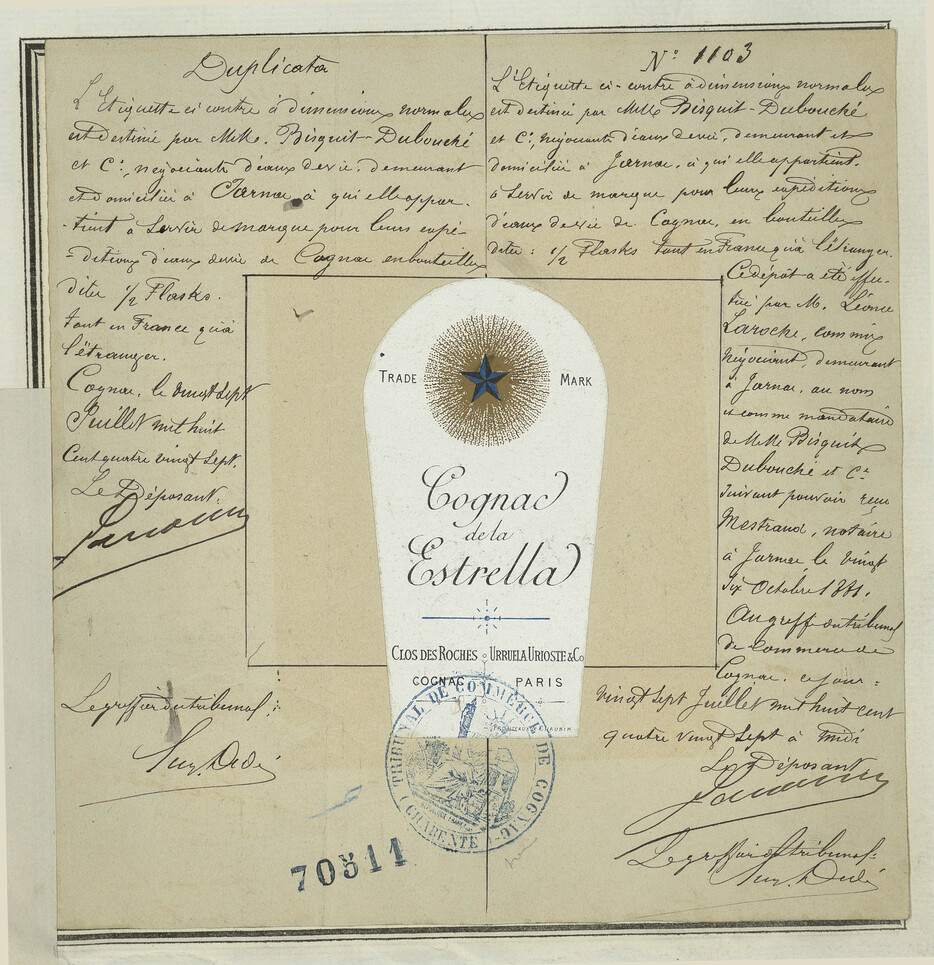 Duplicata
L'Etiquette ci contre à dimensions normales
est destinée par MMrs. Bisquit-Dubouché
et Cie, négociants d'eaux de vie, demeurant
et domiciliés à Jarnac, à qui elle appar-
-tient à servir de marque pour leurs expé-
-ditions d'eaux de vie de Cognac en bouteilles
dites 1/2 Flasks.
tant en France qu'à
l'étranger.
Cognac, le vingt sept
Juillet mil huit
cent quatre vingt sept.
Le Déposant
Le greffier du tribunal :
No 1103
L'Etiquette ci-contre à dimensions normales
est destinée par MMrs Bisquit-Dubouché
et Cie, négociants d'eaux de vie, demeurant et
domiciliés à Jarnac, à qui elle appartient.
à servir de marque pour leurs expéditions
d'eaux de vie de Cognac, en bouteilles
dites : 1/2 Flasks tant en France qu'à l'étranger.
Ce dépôt a été effec-
tué par M. Léonce
Laroche, commis
négociant, demeurant
à Jarnac, au nom
et comme mandataire
de MMrs Bisquit
Dubouché et Cie
suivant pouvoir reçu
Mestraud, notaire
à Jarnac le vingt
six Octobre 1881.
Au greffe du tribunal
de Commerce de
Cognac, ce jour :
vingt sept Juillet mil huit cent
quatre vingt sept à midi
Le Déposant
Le greffier du tribunal :
TRADE MARK
Cognac
de la
Estrella
CLOS DES ROCHES URRUELA URIOSTE & Co
COGNAC PARIS
TRIBUNAL DE COMMERCE DE COGNAC
(CHARENTE)
70511